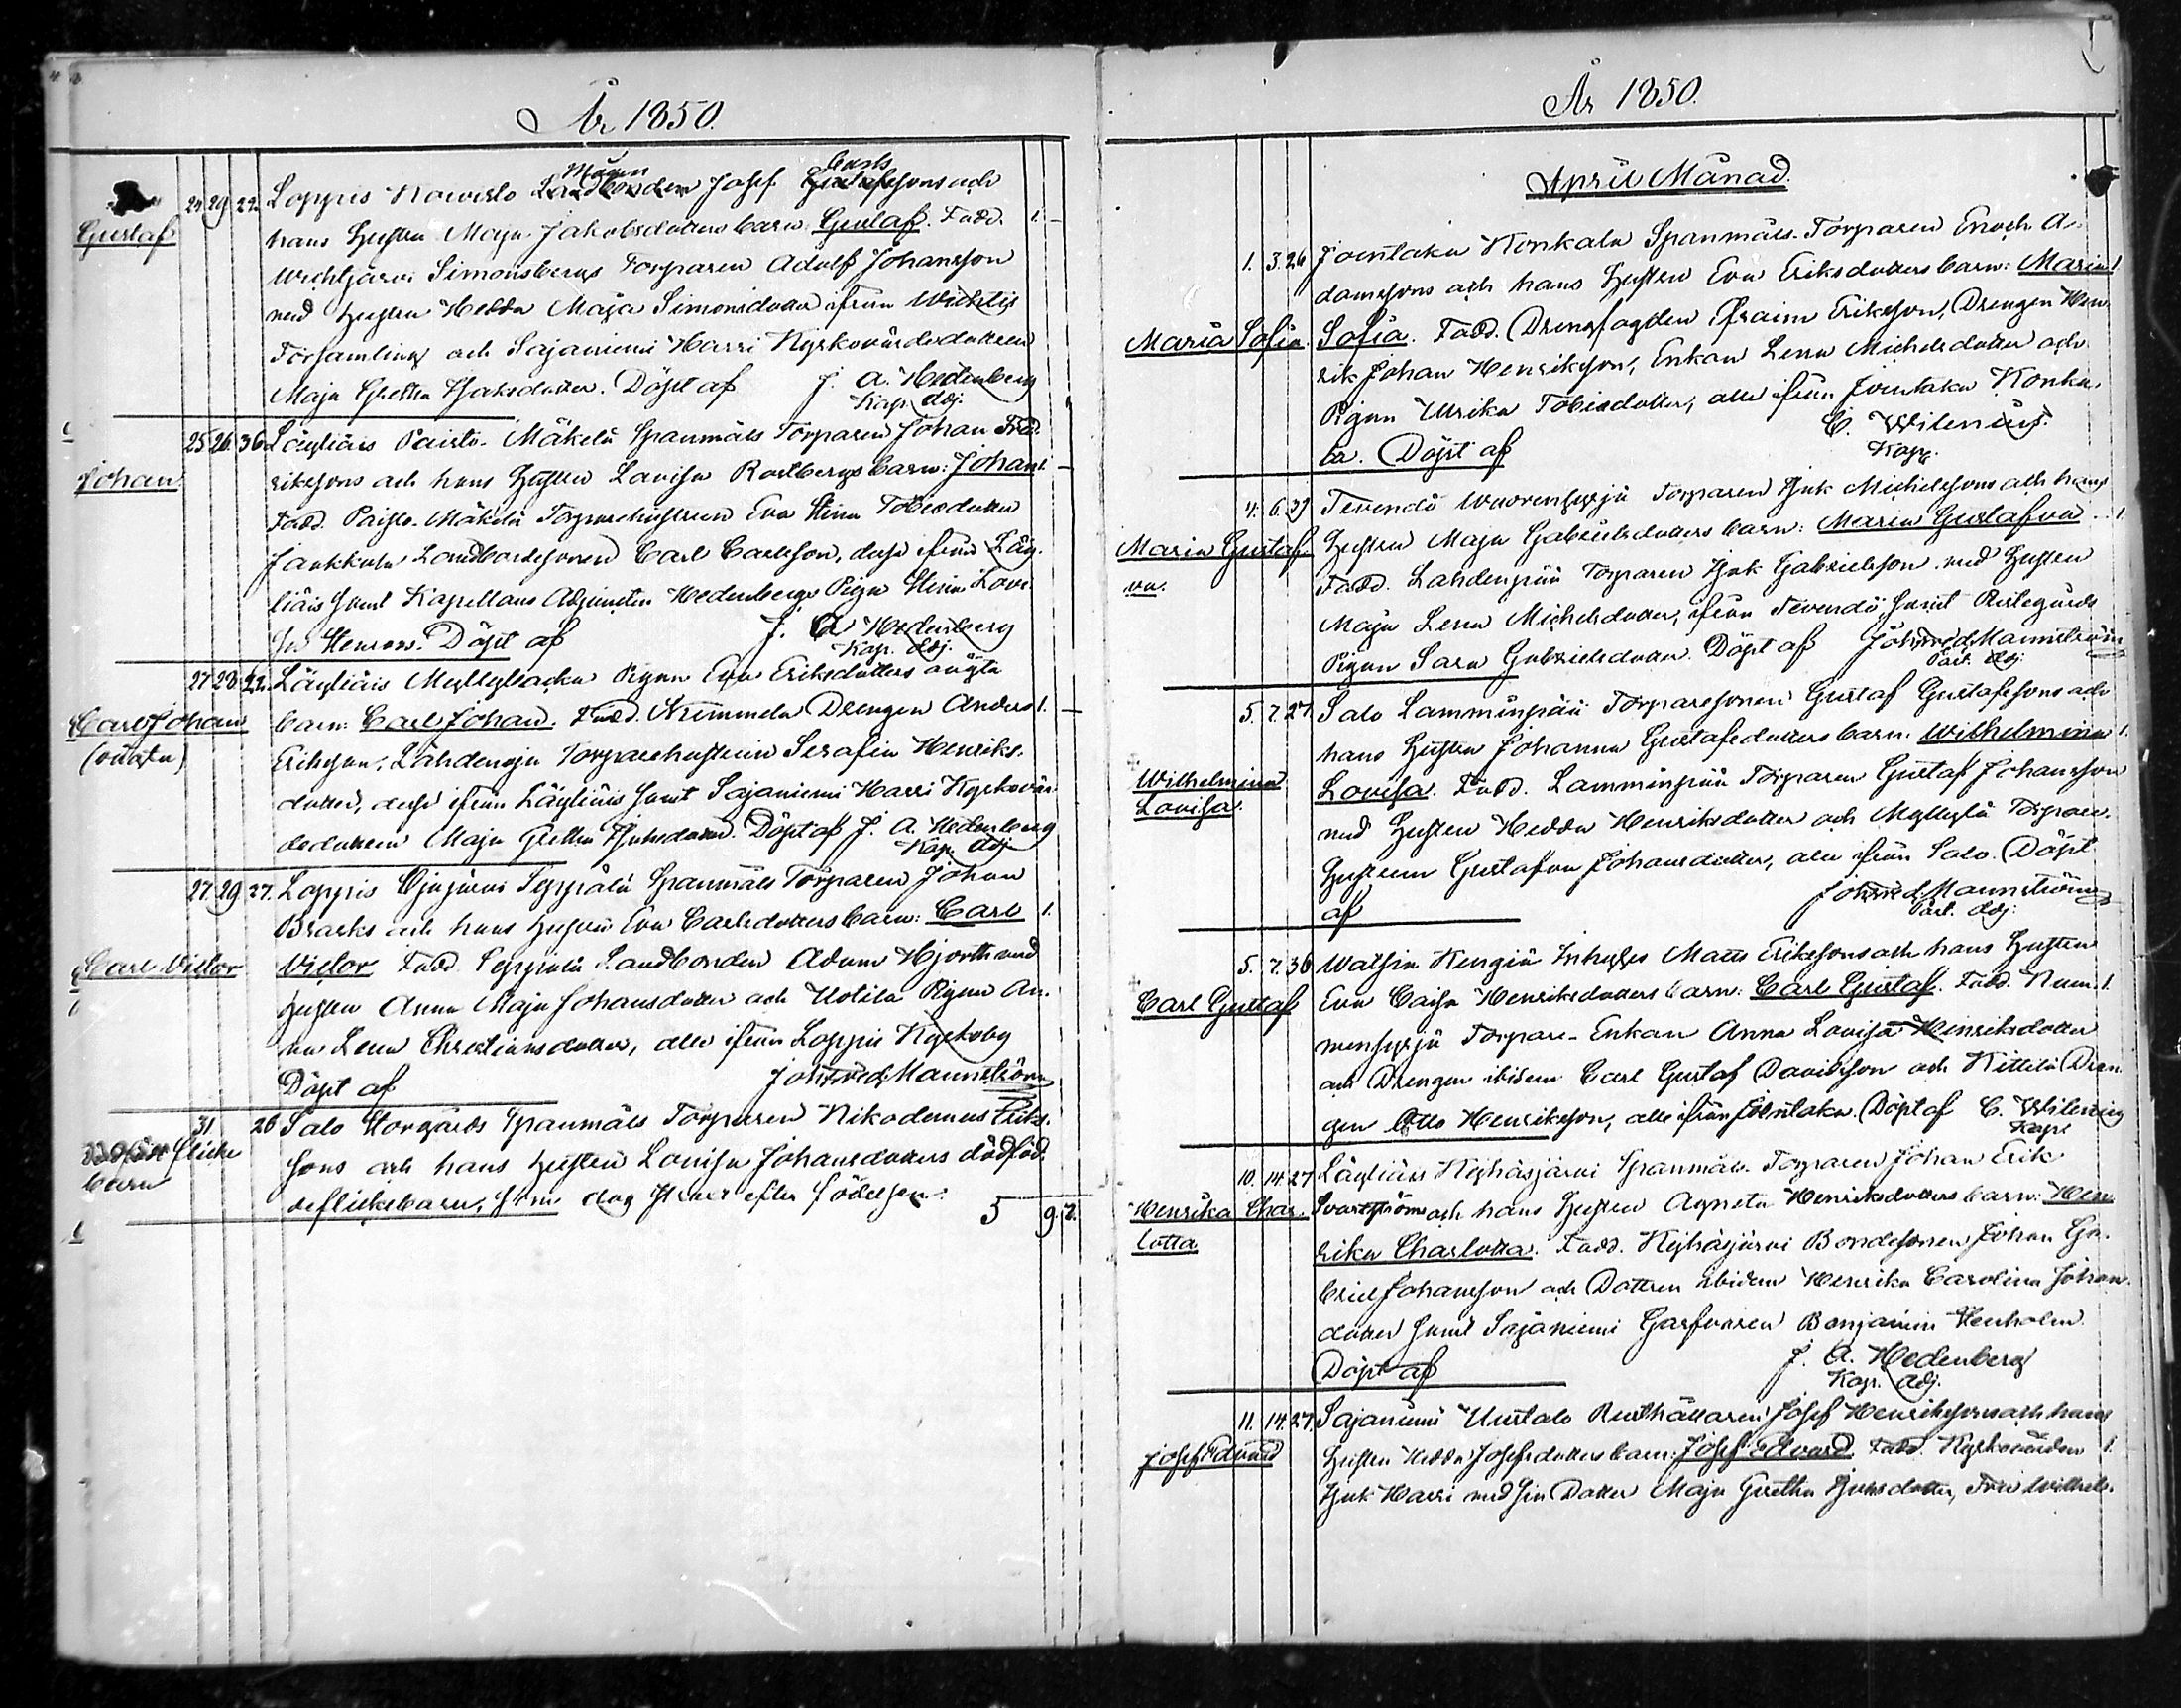 År 1850.
Gustaf
24 29 22. Loppis Nowisto Landbonden Mågen Josef Gustafssons Carls och
hans Hustru Maja Jakobsdotters barn Gustaf. Fadd. 1.
Wichtjärvi Simonsbergs Torparen Adolf Johansson
med Hustru Hedda Maja Simonsdotter ifrån Wichtis
Församling och Sajaniemi Harri Kyrkovärdsdottren
Maja Gretha Isaksdotter. Döpt af J. A. Hedenberg
Kap. Adj.
Johan
25 26. 36 Läyliäis Paisto-Mäkelä Spanmåls Torparen Johan Fred-
rikssons och hans Hustru Lovisa Rostbergs barn: Johan 1.
Fadd. Paisto-Mäkelä Torparehustrun Eva Stina Tobiasdotter
Jankkala Landbondesonen Carl Carlsson, desse ifrån Läy-
liäis samt Kapellans Adjuncten Hedenbergs Piga Stina Lovi-
sa Stenroos. Döpt af J. A. Hedenberg
Kap. Adj.
Carl Johan
(oägta)
27 28. 22. Läyliäis Myllylacka Pigan Eva Eriksdotters oägta
barn: Carl Johan. Fadd. Drengen Anders 1.
Eriksson, Lähdenoja Torparehustrun Serafia Henriks-
dotter, desse ifrån Läyliäis samt Sajaniemi Harri Kyrkovär-
dedottren Maja Gretha Isaksdotter. Döpt af J. A. Hedenberg
Kap. Adj.
Carl Victor
27 29 27. Loppis Ojajärvi Seppälä Spanmåls Torparen Johan
Brarks och hans Hustru Eva Carlsdotters barn: Carl 1.
Victor Fadd. Seppälä Landbonden Adam Hjorth med
Hustru Anna Maja Johansdotter och Uotila Pigan An-
na Lena Christiansdotter, alla ifrån Loppis Kyrkoby
Döpt af Joh Fred Mannström
flicke
barn
31 26 Salo Storgårds Spanmåls Torparen Nikodemus Eriks-
sons och hans Hustru Lovisa Johansdotters dödföd-
de flickebarn, som dog strax efter födelsen.
5 9. 7.
År 1850.
April Månad.
1. 3. 26 Joentaka Konkala Spanmåls-Torparen Enoch A-
damssons och hans Hustru Eva Eriksdotters barn: Maria 1
Maria Sofia. Sofia. Fadd. Drengfogden Efraim Eriksson, Drengen Hen-
rik Johan Henriksson, Enkan Lena Michelsdotter och
Pigan Ulrika Tobiasdotter, alla ifrån Joentaka Konka-
la. Döpt af C. Wilenius.
Kapl.
4. 6. 29 Tevendö Wuorenpyjä Torparen Isak Michelssons och hans
Maria Gustaf Hustru Maja Gabrielsdotters barn: Maria Gustafva 1.
va. Fadd. Lahdenpää Torparen Isak Gabrielsson med Hustru
Maja Lena Michelsdotter, ifrån Tevendö samt Prestgårds
Pigan Sara Gabrielsdotter. Döpt af Joh Fred Mannström
Past. Adj.
5. 7. 27. Salo Lamminpää Torparesonen Gustaf Gustafssons och
hans Hustru Johanna Gustafsdotters barn. Wilhelmina 1.
Wilhelmina Lovisa. Fadd. Lamminpää Torparen Gustaf Johansson
Lovisa. med Hustru Hedda Henriksdotter och Myllylä Torpare-
Hustrun Gustafva Johansdotter, alla ifrån Salo. Döpt
af Joh Fred Mannström
Past. Adj.
5. 7. 36 Watsia Kengiä Inhyses Matts Erikssons och hans Hustru
Carl Gustaf Eva Caisa Henriksdotters barn: Carl Gustaf. Fadd. Num- 1.
menpyjä Torpare-Enkan Anna Lovisa Henriksdotter
och Drengen ibidem Carl Gustaf Davidsson och Kittilä Dren-
gen Otto Henriksson, alla ifrån Joentaka. Döpt af C. Wilenius
Kapl
10. 14 27 Läyliäis Keihäsjärvi Spanmåls-Torparen Johan Erik
Henrika Char- Svartströms och hans Hustru Agneta Henriksdotters barn: Hen-
lotta rika Charlotta. Fadd. Keihäsjärvi Bondesonen Johan Ga-
briel Johansson och Dottren ibidem Henrika Carolina Johans-
dotter samt Sajaniemi Garfvaren Benjamin Stenholm
Döpt af J. A. Hedenberg
Kap. Adj.
11. 14. 27. Sajaniemi Uustalo Rusthållaren Josef Henrikssons och hans
Josef Edvard Hustru Hedda Josefsdotters barn: Josef Edvard. Fadd. Kyrkovärden 1.
Isak Harri med sin Dotter Maja Gretha Isaksdotter, Fru Wilhel-